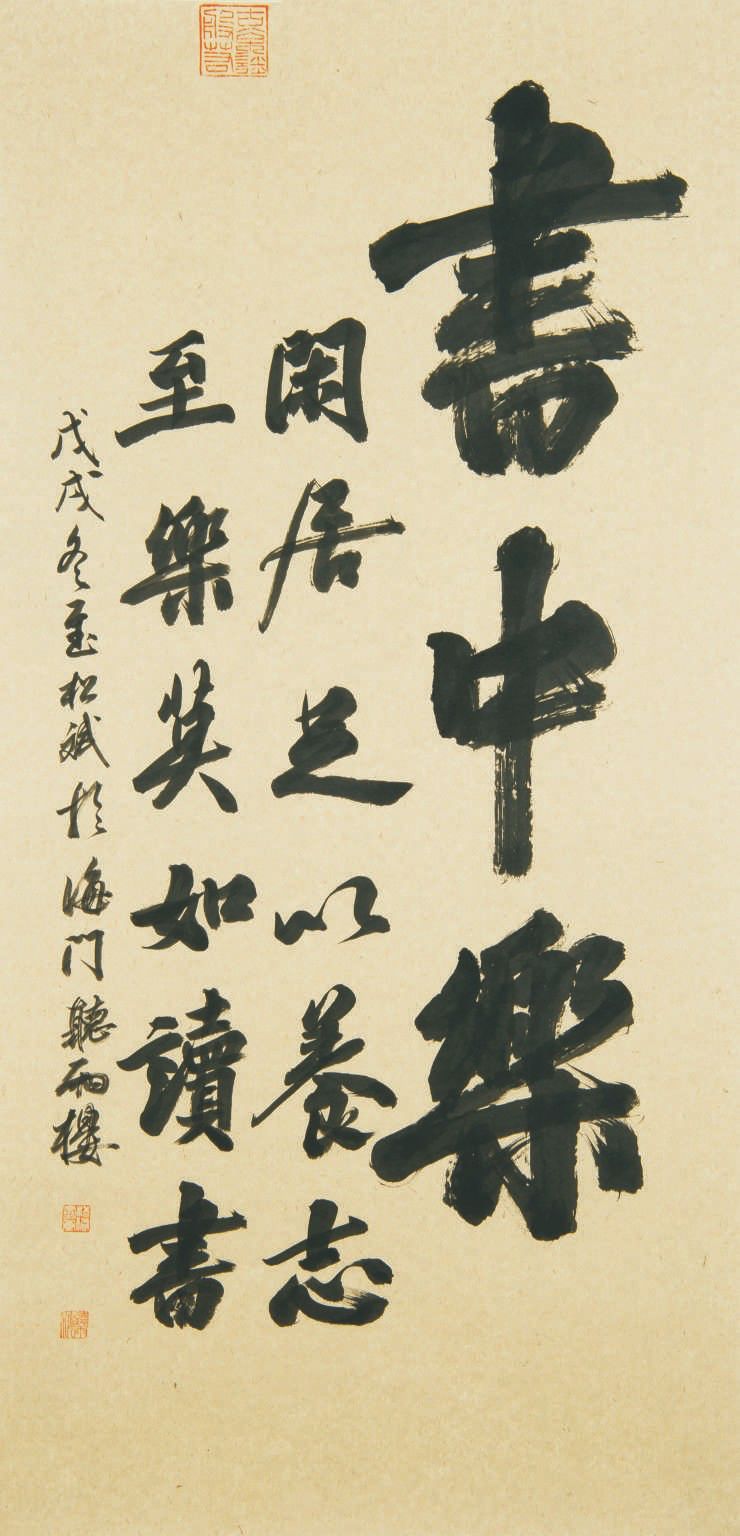 書中樂
閑居足以養志
至樂莫如讀書
戊戌冬至松斌於海門聽雨樓